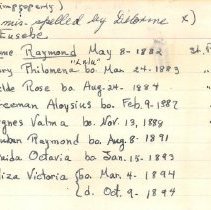 (improperly)
(mis. spelled by Delorme x)
Eusebe
me Raymond May 8-1882 St.
"Lulu"
ry Philomena bo. Mar 24-1883
elde Rose bo Aug-24-1884
reeman Aloysius bo Feb. 9-1887
gnes Valma bo. Nov. 13, 1888
uban Raymond bo Aug. 8-1891
naida Octavia bo Jan. 15-1893
liza Victoria {bo. Mar. 4-1894
{d. Oct. 9-1894